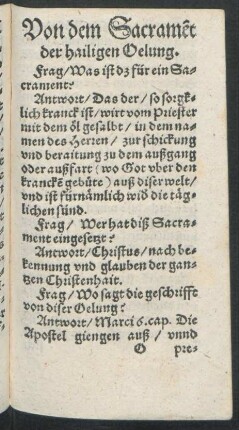 Von dem Sacramēt
der hailigen Oelung.
Frag/Was ist dz für ein Sa-
crament?
Antwort/Das der/so sorgk-
lich kranck ist/wirt vom Priester
mit dem öl gesalbt/in dem na-
men des Herren/zur schickung
vnd beraitung zu dem außgang
oder außfart (wo Got vber den
krancken gebüte) auß diser welt/
vnd ist fürnämlich wid die täg-
lichen sünd.
Frag/Wer hat diß Sacra-
ment eingesetzt?
Antwort/Christus/nach be-
kennung vnd glauben der gan-
tzen Christenhait.
Frag/Wo sagt die geschrifft
von diser Oelung?
Antwort/Marci 6. cap. Die
Apostel giengen auß/vnnd
O pre-